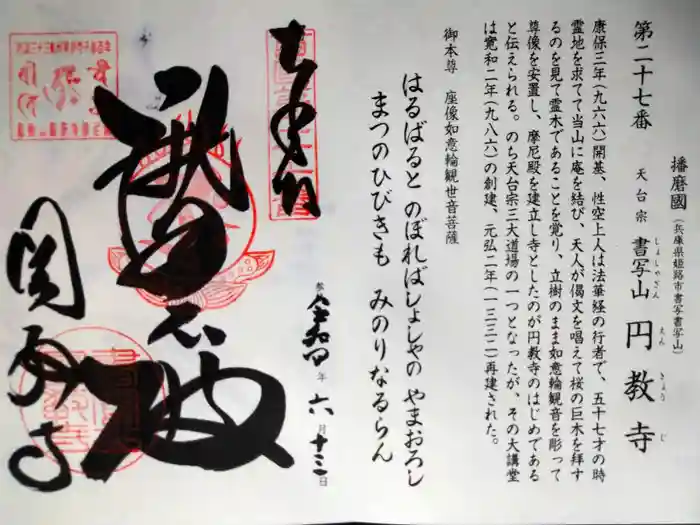 播磨國(兵庫県姫路市書写書写山)
第二十七番 天台宗 書写山 円教寺
しょしゃざん えんきょうじ
康保三年(九六六)開基、性空上人は法華経の行者で、五十七才の時
霊地を求てて当山に庵を結び、天人が偈文を唱えて桜の巨木を拝す
るのを見て霊木であることを覚り、立樹のまま如意輪観音を彫って
尊像を安置し、摩尼殿を建立し寺としたのが円教寺のはじめである
と伝えられる。のち天台宗三大道場の一つとなったが、その大講堂
は寛和二年(九八六)の創建、元弘二年(一三三二)再建された。
御本尊 座像如意輪観世音菩薩
はるばると のぼればしょしゃの やまおろし
まつのひびきも みのりなるらん
年六月十三日